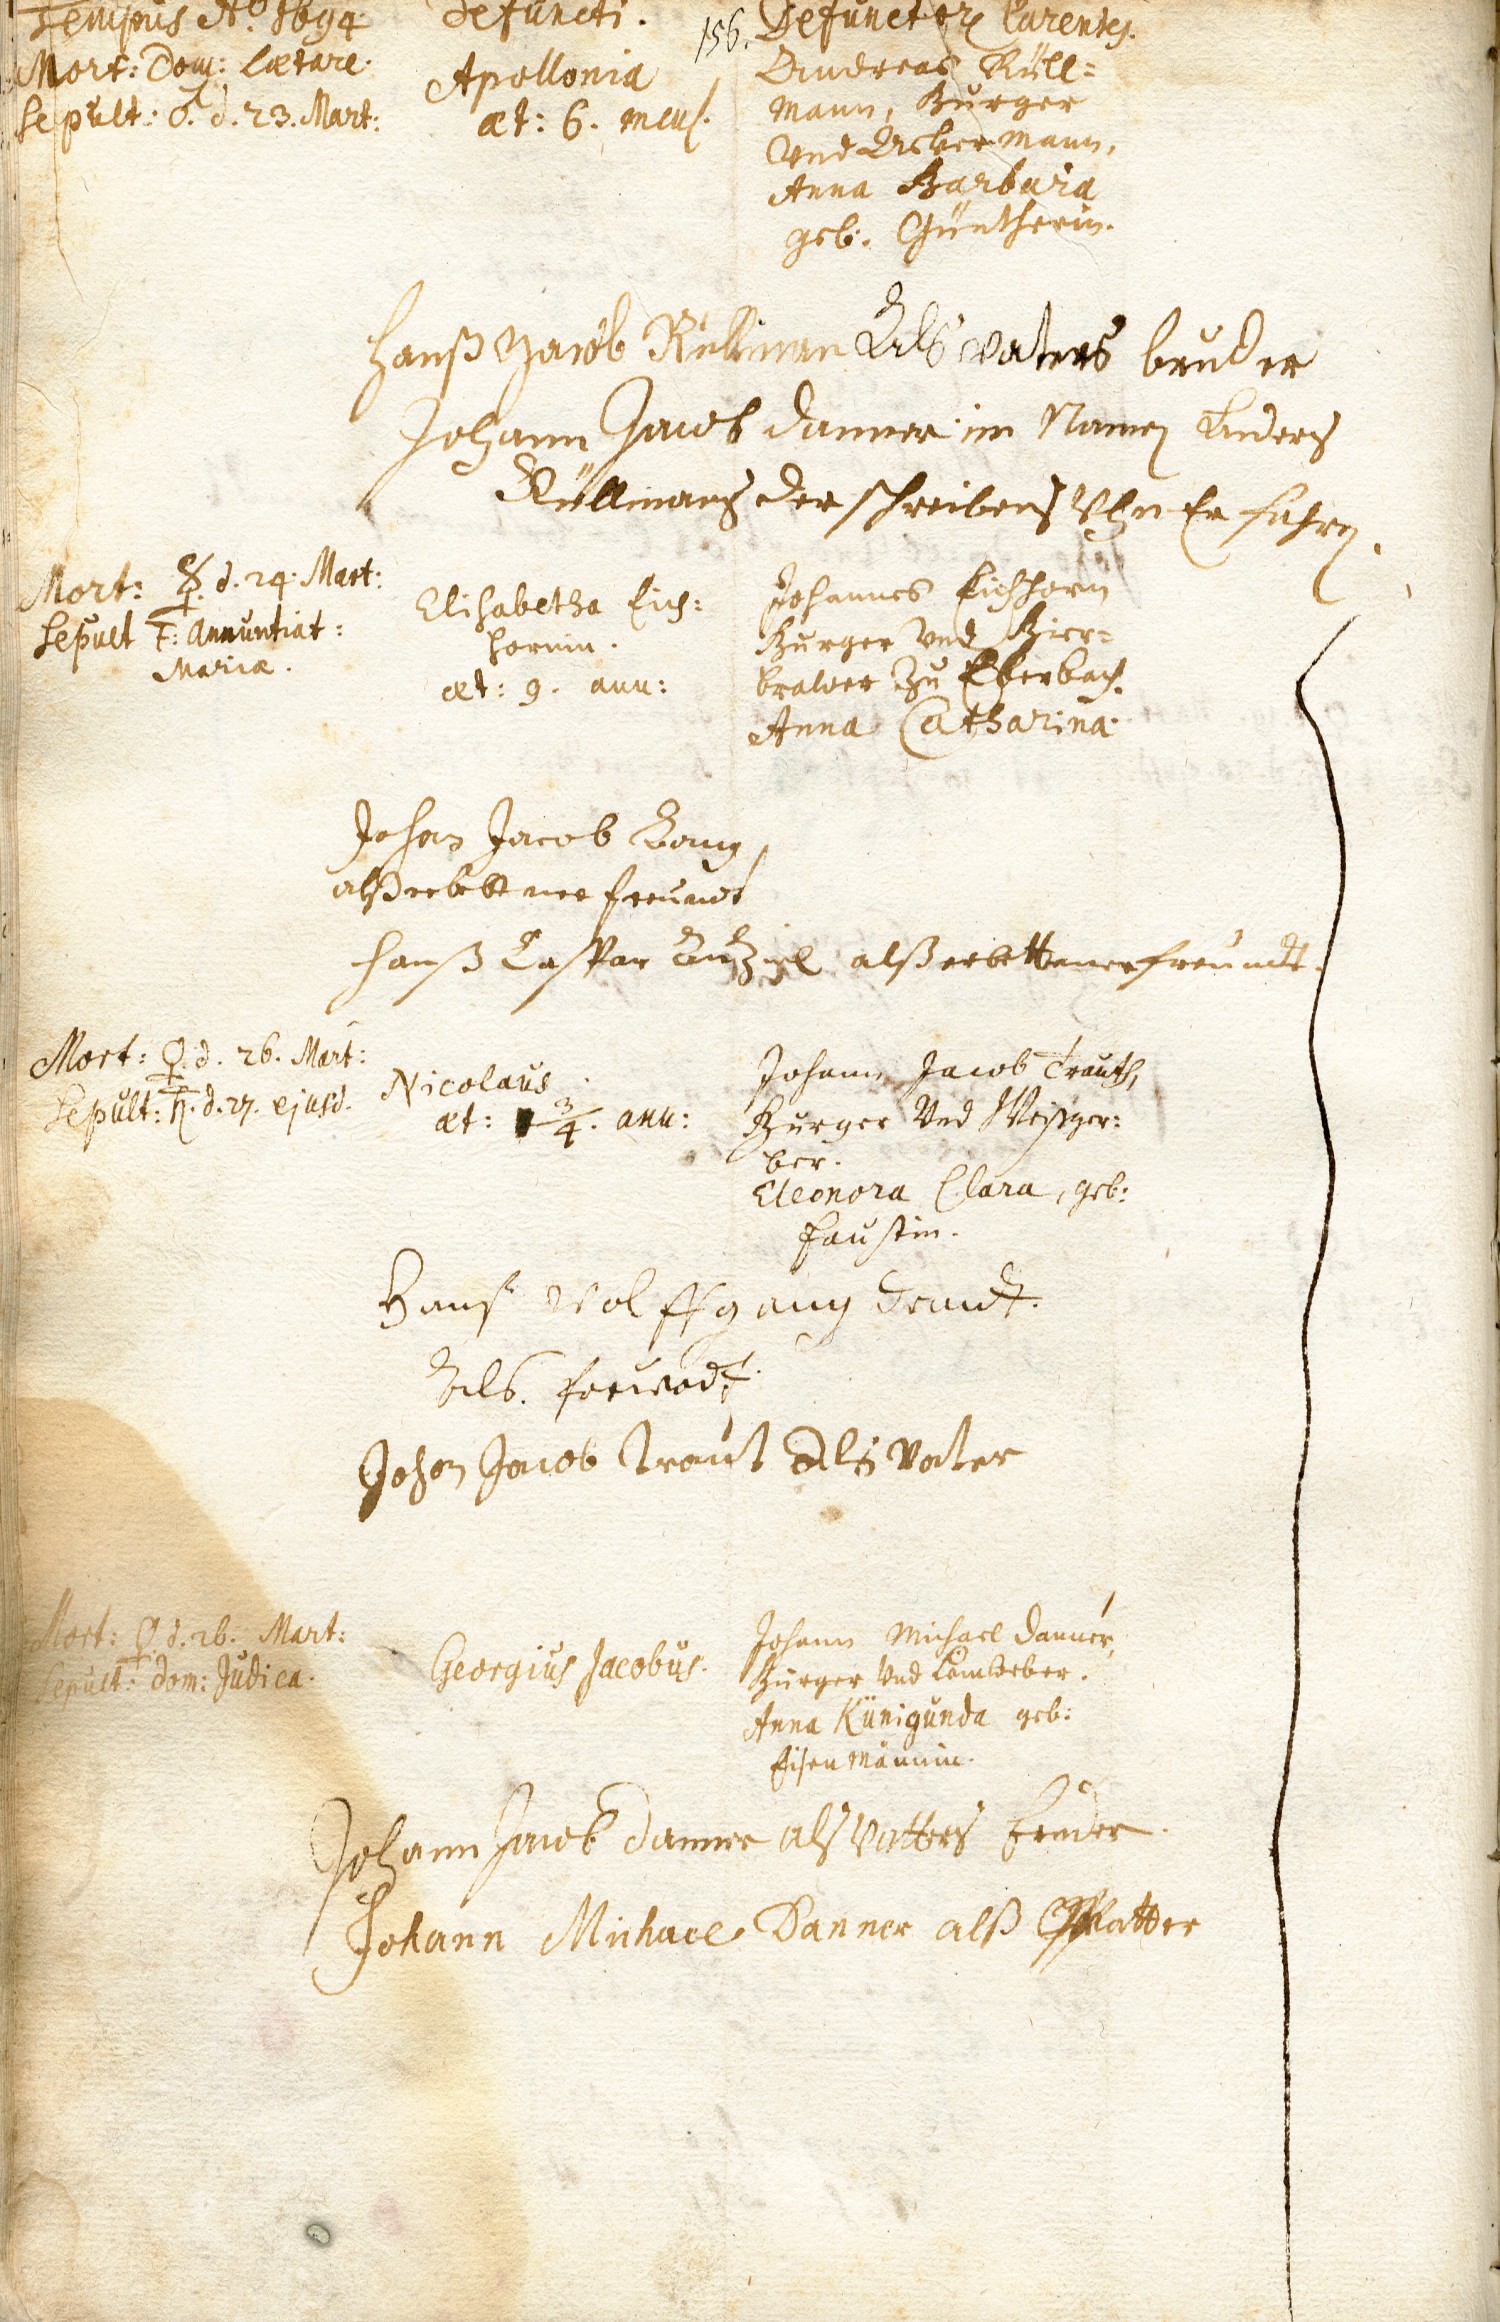 Tempus Aº. 1694.
Defuncti.
156.
Defunctor Parentes.
Mort: Dom: Lætare.
Sepult: ♂. d. 23. Mart:
Apollonia
æt: 6. mens.
Andreas Rüll=
mann, Burger
Vnd Ackermann,
Anna Barbara
geb. Güntherin.
Hanß Jacob Rullman Als vaters bruder
Johann Jacob Danner im Namen Anders
Rüllmans der schreibens Vhn Er fahrn.
Mort: ☿. d. 24. Mart:
Sepult F: Annuntiat:
Mariæ.
Elisabetha Eich:
hornin.
æt: 9. ann:
Johannes Eichhorn
Burger Vnd Bier=
brawer zu Eberbach.
Anna Catharina.
Johan Jacob
alß erbettner freundt
Hanß Caspar alß erbettener freundt.
Mort: ♀. d. 26. Mart:
Sepult: ♄. d. 27. ejusd.
Nicolaus
æt: 3/4. ann:
Johann Jacob Trauth,
Burger Vnd Weißger:
ber.
Eleonora Clara, geb:
Faustin.
Hans Wolffgang Traudt.
Als. freundt.
Johan Jacob Traut Als Vater
Mort: ♀ d. 26. Mart:
Sepult: Dom: Judica.
Georgius Jacobus.
Johann Michael Danner,
Burger Vnd Leinweber.
Anna Künigunda geb:
Eisenmännin.
Johann Jacob Danner als Vatters bruder.
Johann Michael Danner alß Vatter